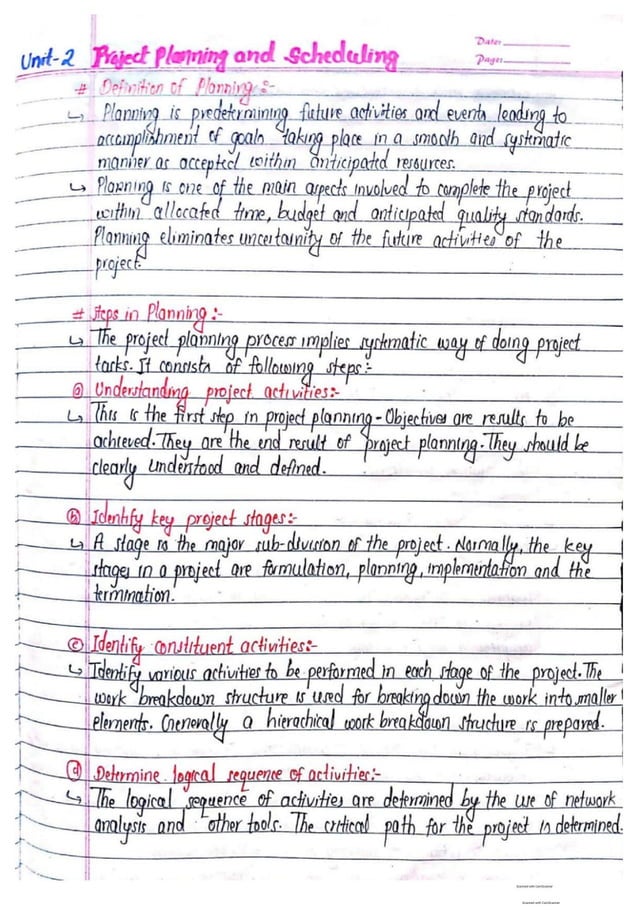 Date:
Unit-2 Project Planning and Scheduling
Page:
# Definition of Planning :-
↳ Planning is predetermining future activities and events leading to
accomplishment of goals taking place in a smooth and systematic
manner as accepted within anticipated resources.
↳ Planning is one of the main aspects involved to complete the project
within allocated time, budget and anticipated quality standards.
Planning eliminates uncertainity of the future activities of the
project.
# Steps in Planning :-
↳ The project planning process implies systmatic way of doing project
tasks. It consists of following steps :-
ⓐ Understanding project activities:-
↳ This is the first step in project planning - Objectives are results to be
achieved. They are the end result of project planning. They should be
clearly understood and defined.
ⓑ Identify key project stages:-
↳ A stage is the major sub-division of the project. Normally, the key
stages in a project are formulation, planning, implementation and the
termination.
ⓒ Identify constituent activities:-
↳ Identify various activities to be performed in each stage of the project. The
work breakdown structure is used for breaking down the work into smaller
elements. Generally a hierachical work breakdown structure is prepared.
ⓓ Determine logical sequence of activities:-
↳ The logical sequence of activities are determined by the use of network
analysis and other tools. The critical path for the project is determined.
Scanned with CamScanner
Scanned with CamScanner